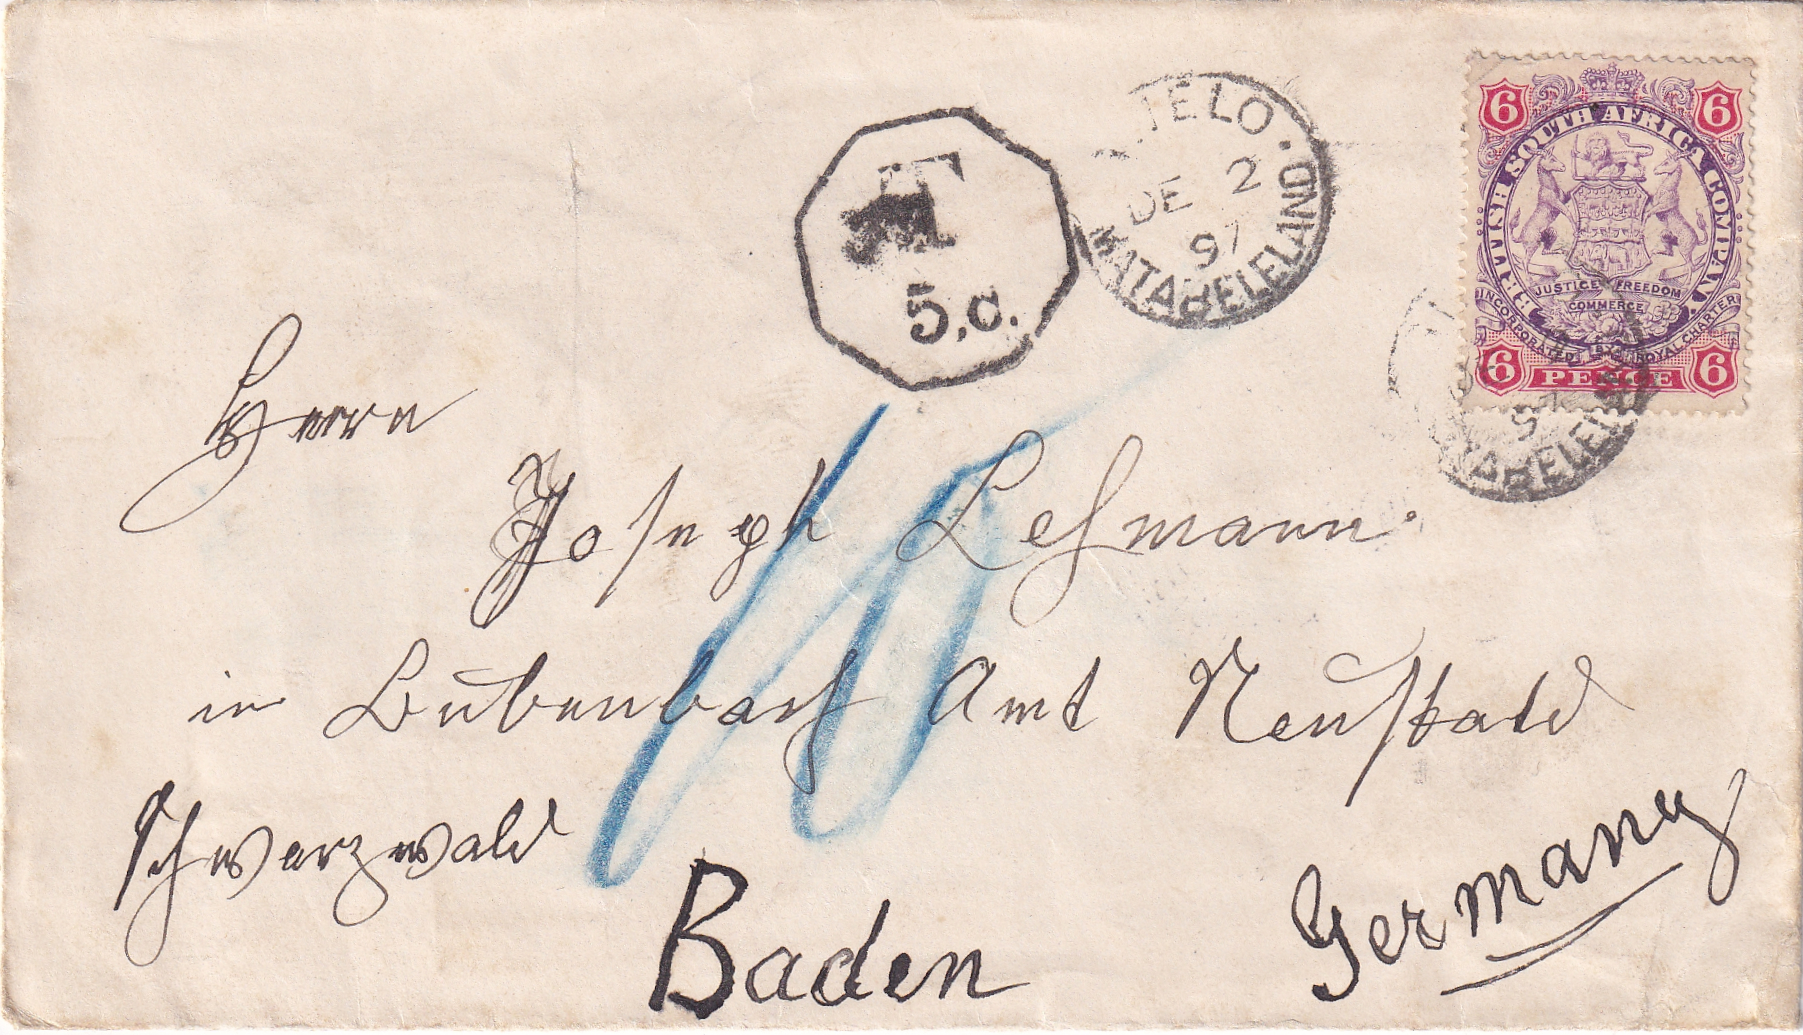 6 6
BRITISH SOUTH AFRICA COMPANY.
JUSTICE FREEDOM
COMMERCE
INCORPORATED BY ROYAL CHARTER
6 PENCE 6
DE 2
97
MATABELELAND
T
5.c.
10
Herrn
Joseph Lehmann.
in Bubenbach Amt Neustadt
Schwarzwald
Baden
Germany